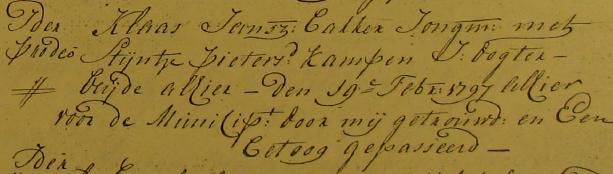 Ider Klaas Jansz: Calker Jongm: met
prodeo Stijntje pieters:d Kampen J: dogter –
// beijde alhier – den 19:e Febr: 1797 Alhier
voor de Municip:t door mij getrouwd: en Een
Betoog gepasseerd –
Ider